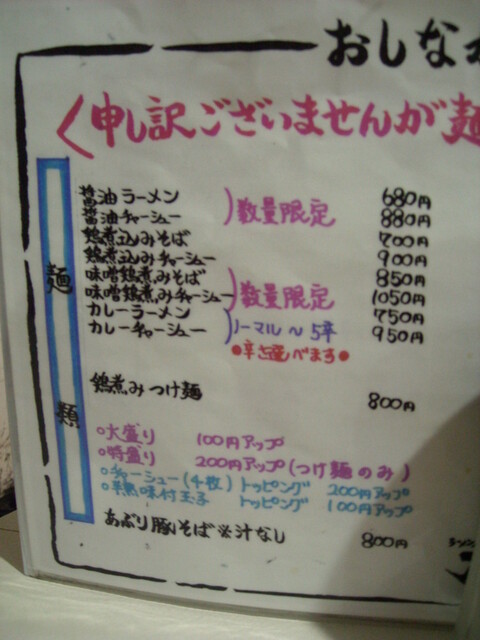 おしな
く申し訳ございませんが麺
麺類
醤油ラーメン 680円
醤油チャーシュー 880円
数量限定
鶏煮込みそば 700円
鶏煮込みチャーシュー 900円
味噌鶏煮みそば 850円
味噌鶏煮みチャーシュー 1050円
数量限定
カレーラーメン 750円
カレーチャーシュー 950円
ノーマル〜5辛
●辛さ選べます●
鶏煮みつけ麺 800円
○大盛り 100円アップ
○特盛り 200円アップ(つけ麺のみ)
○チャーシュー(4枚)トッピング 200円アップ
○半熟味付玉子 トッピング 100円アップ
あぶり豚いそば※汁なし 800円